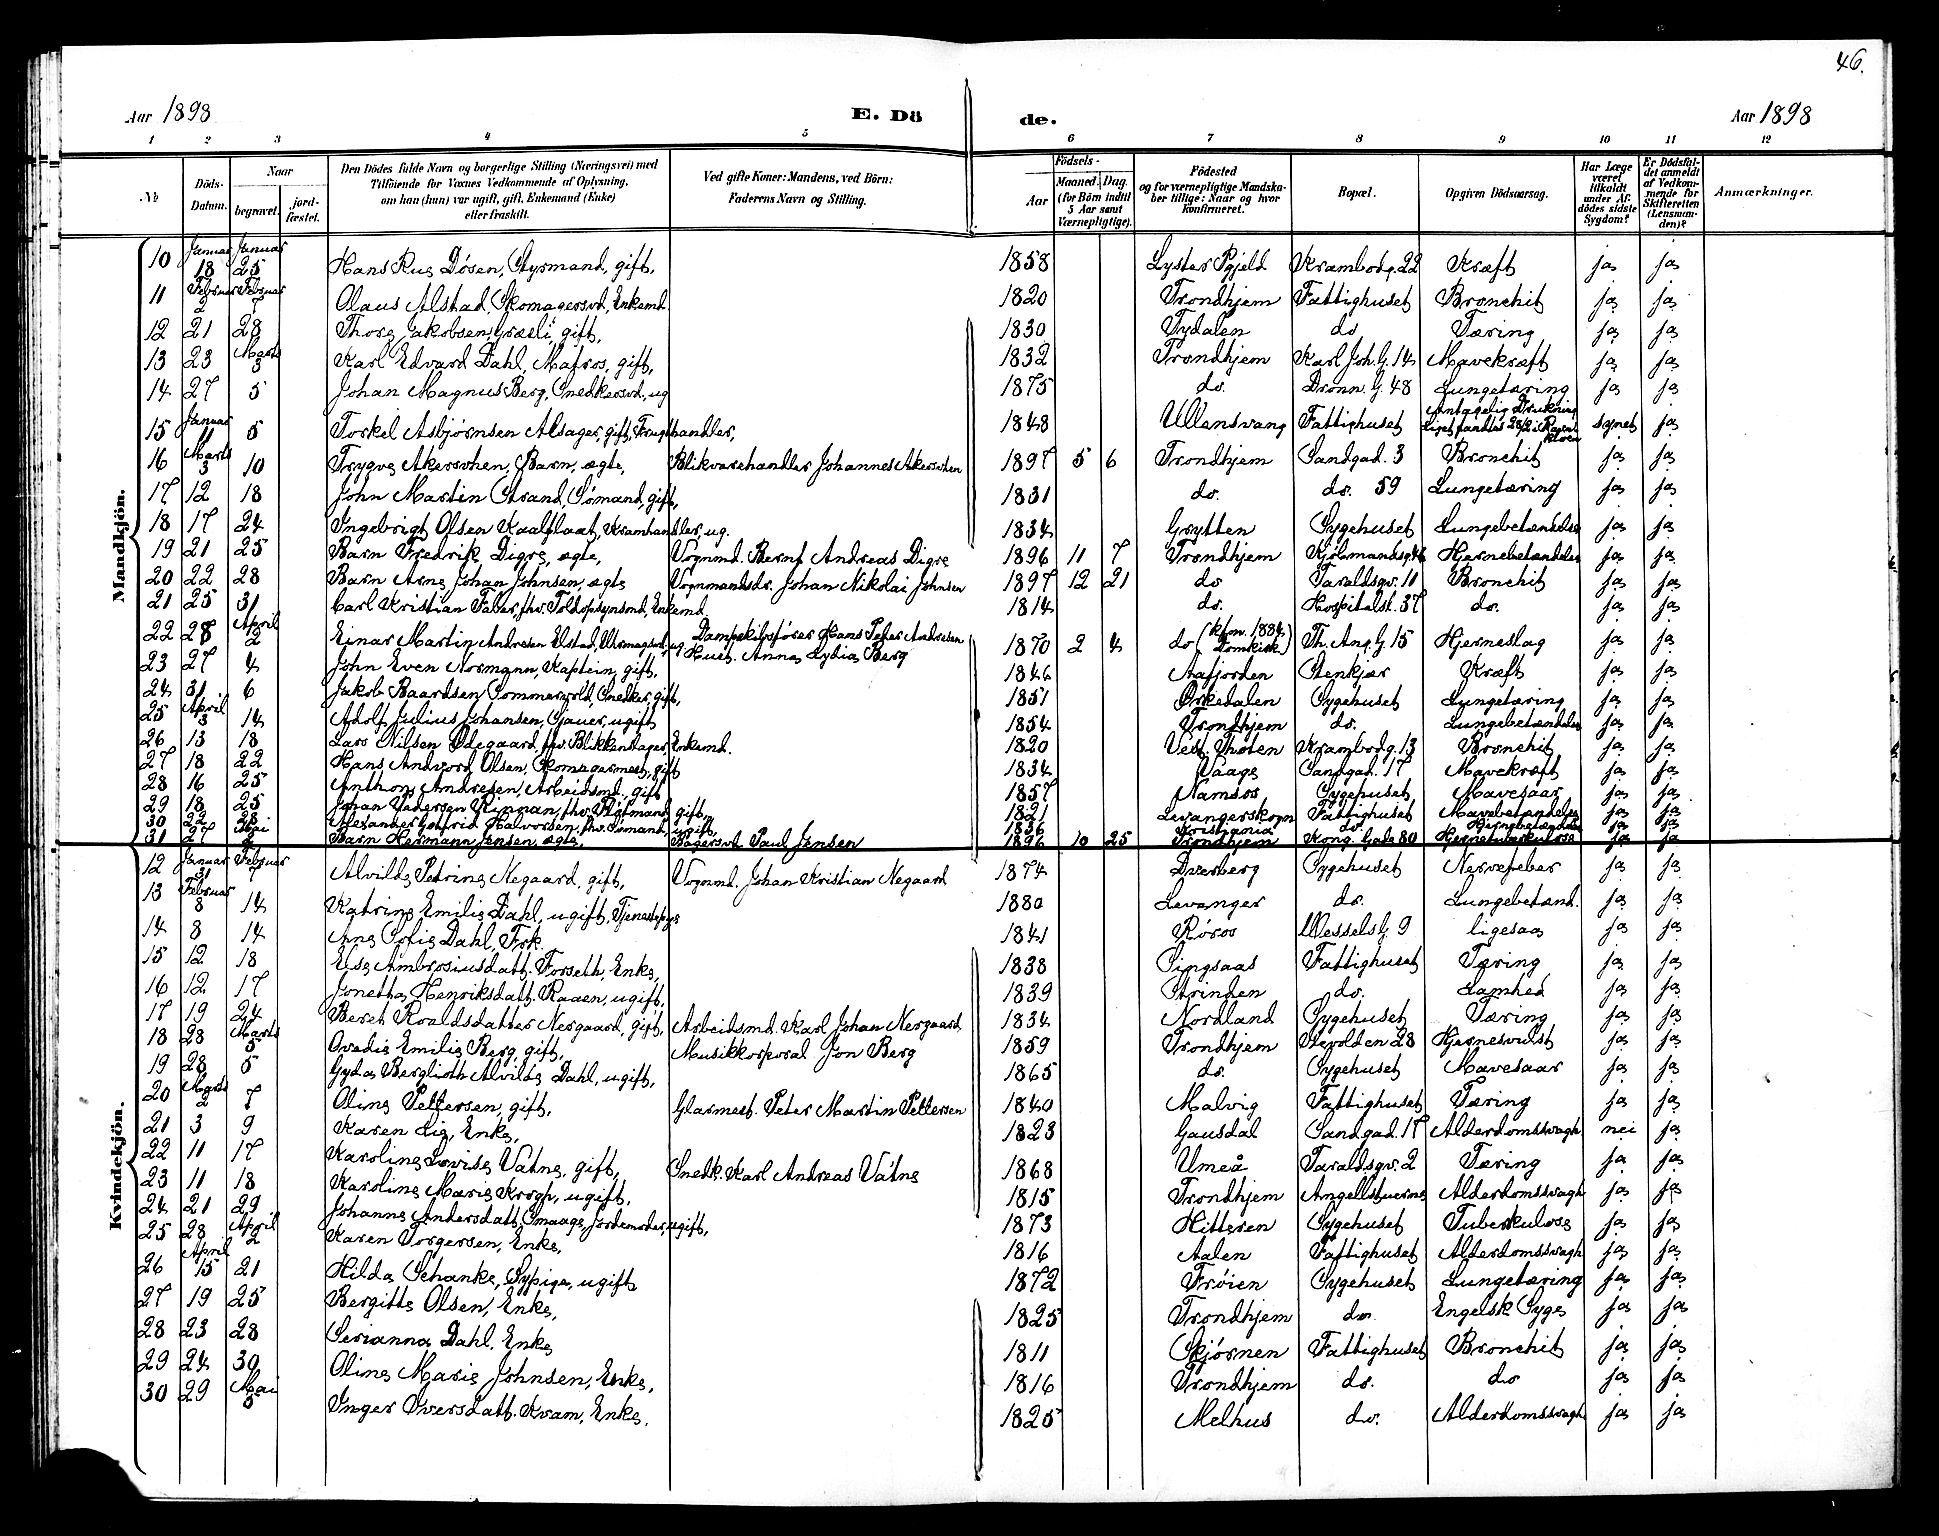 46.
Aar 1898 E. Dö de. Aar 1898
1 2 3 4 5 6 7 8 9 10 11 12
No
Döds-Datum.
Naar
begravet.
jord-fæstet.
Den Dödes fulde Navn og borgerlige Stilling (Næringsvei) med
Tilföiende for Voxnes Vedkommende af Oplysning,
om han (hun) var ugift, gift, Enkemand (Enke)
eller fraskilt.
Ved gifte Koner: Mandens, ved Börn:
Faderens Navn og Stilling.
Födsels-
Aar
Maaned. Dag.
(for Börn indtil
5 Aar samt
Værnepligtige).
Födested
og for værnepligtige Mandska-
ber tillige: Naar og hvor
konfirmeret.
Bopæl.
Opgiven Dödsaarsag.
Har Læge
været
tilkaldt
under Af-
dödes sidste
Sygdom?
Er Dödsfal-
det anmeldt
af Vedkom-
mende for
Skifteretten
(Lensman-
den)?
Anmærkninger.
Mandkjön.
10 Januar 18 Januar 25 Hans Rus Døsen, Styrmand, gift, 1858 Lyster Pgjeld Krambodg. 22 Kræft ja ja
11 Februar 2 Februar 7 Olaus Alstad, Skomagersvd, Enkemd. 1820 Trondhjem Fattighuset Bronchit ja ja
12 21 28 Thore Jakobsen Græsli, gift, 1830 Tydalen do Tæring ja ja
13 23 Marts 3 Karl Edvard Dahl, Matros, gift, 1832 Trondhjem Karl Joh. G. 14 Mavekræft ja ja
14 27 5 Johan Magnus Berg, Snedkersvd, ug 1875 do. Dronn. G. 48 Lungetæring ja ja
15 Januar 11 5 Torkel Asbjørnsen Alsager, gift, Frugthandler, 1848 Ullensvang Fattighuset Antagelig Drukning Liget fandtes synet ja
16 Marts 3 10 Trygve Akersvhen, Barn, ægte, Blikvarehandler Johannes Akersvhen 1897 5 6 Trondhjem Sandgad. 3 Bronchit ja ja
17 12 18 John Martin Strand, Sømand, gift, 1831 do. do. 59 Lungetæring ja ja
18 17 24 Ingebrigt Olsen Kaalflaat, Kramhandler, ug. 1834 Grytten Sygehuset Lungebetændelse ja ja
19 21 25 Barn Fredrik Digre, ægte, Vognmd. Bernt Andreas Digre 1896 11 7 Trondhjem Kjøbmandsg. 46 Hjernebetændelse ja ja
20 22 28 Barn Arne Johan Johnsen, ægte Vognmandsdr. Johan Nikolai Johnsen 1897 12 21 do Taraldsgv. 11 Bronchit ja ja
21 25 31 Carl Kristian Faber, fhv. Toldopsynsmd, Enkemd. 1814 do. Hospitalst. 37 do. ja ja
22 28 April 2 Einar Martin Andresen Elstad, Uhrmagsvd, ug Dampskibsfører Hans Peter Andresen Hust. Anna Lydia Berg 1870 2 4 do (kfm. 1884 Domkirk) Th. Ang. G. 15 Hjerneslag ja ja
23 27 4 John Even Normann, Kaptein, gift, 1846 Aafjorden Stenkjær Kræft ja ja
24 31 6 Jakob Baardsen Sommervold, Snedker, gift, 1851 Ørkedalen Sygehuset Lungetæring ja ja
25 April 3 14 Adolf Julius Johansen, Sjauer, ugift 1854 Trondhjem do. Lungebetændelse ja ja
26 13 18 Lars Nilsen Ødegaard, fhv. Blikkenslager, Enkemd. 1820 Vest. Thoten Krambodg. 13 Bronchit ja ja
27 18 22 Hans Andvord Olsen, Skomagermest, gift 1834 Vaage Sandgad. 17 Mavekræft ja ja
28 16 25 Anthon Andresen, Arbeidsmd. gift 1857 Namsos Sygehuset Mavesaar ja ja
29 18 25 Johan Pedersen Rinnan, fhv. Fløtmand, gift, 1821 Levangerskogn Fattighuset Mavebetændelse ja ja
30 22 28 Alexander Gotfrid Halvorsen, fhv. Sømand, ugift, 1836 Kristiania do. Hjernebetændelse ja ja
31 27 Mai 2 Barn Hermann Jensen, ægte, Bagersvd. Paul Jensen 1896 10 25 Trondhjem Kong. Gade 80 Hjernetuberkulose ja ja
Kvindekjön.
12 Januar 31 Februar 7 Alvilde Petrine Negaard, gift, Vognmd. Johan Kristian Negaard 1874 Dverberg Sygehuset Nervefeber ja ja
13 Februar 8 14 Katrine Emilie Dahl, ugift, Tjenestepige 1880 Levanger do. Lungebetænd. ja ja
14 8 14 Ane Sofie Dahl, Frk. 1841 Røros Wessels G. 9 ligesaa ja ja
15 12 18 Else Ambrosiusdatt. Forseth, Enke, 1838 Singsaas Fattighuset Tæring ja ja
16 12 17 Jonetta Henriksdatt. Raaen, ugift, 1839 Strinden do. Lamhed ja ja
17 19 24 Beret Roaldsdatter Nergaard, gift, Arbeidsmd. Karl Johan Nergaard 1834 Nordland Sygehuset Tæring ja ja
18 28 Marts 5 Ovedie Emilie Berg, gift, Musikkorporal Jon Berg 1859 Trondhjem Vevolden 28 Hjernesvulst ja ja
19 28 5 Gyda Berglioth Alvilde Dahl, ugift, 1865 do. Sygehuset Mavesaar ja ja
20 Marts 2 7 Oline Pettersen, gift, Glarmest. Peter Martin Pettersen 1840 Malvig Fattighuset Tæring ja ja
21 3 9 Karen Lie, Enke, 1823 Gausdal Sandgad. 17 Alderdomssvagh nei ja
22 11 17 Karoline Lovise Vatne, gift, Snedk. Karl Andreas Vatne 1868 Umeå Taraldsgv. 2 Tæring ja ja
23 11 18 Karoline Marie Krogh, ugift, 1815 Trondhjem Angellstuerne Alderdomssvagh ja ja
24 21 29 Johanne Andersdatt. Smaage, Jordemoder, ugift, 1873 Hitteren Sygehuset Tuberkulose ja ja
25 28 April 2 Karen Torgersen, Enke, 1816 Aalen Fattighuset Alderdomssvagh ja ja
26 April 15 21 Hilda Schanke, Sypige, ugift 1872 Frøien Sygehuset Lungetæring ja ja
27 19 25 Bergitte Olsen, Enke, 1825 Trondhjem do. Engelsk Syge ja ja
28 23 28 Serianna Dahl, Enke 1811 Skjørnen Fattighuset Bronchit ja ja
29 24 30 Oline Marie Johnsen, Enke, 1816 Trondhjem do. do ja ja
30 29 Mai 5 Inger Iversdatt. Kvam, Enke, 1825 Melhus do. Alderdomssvagh ja ja